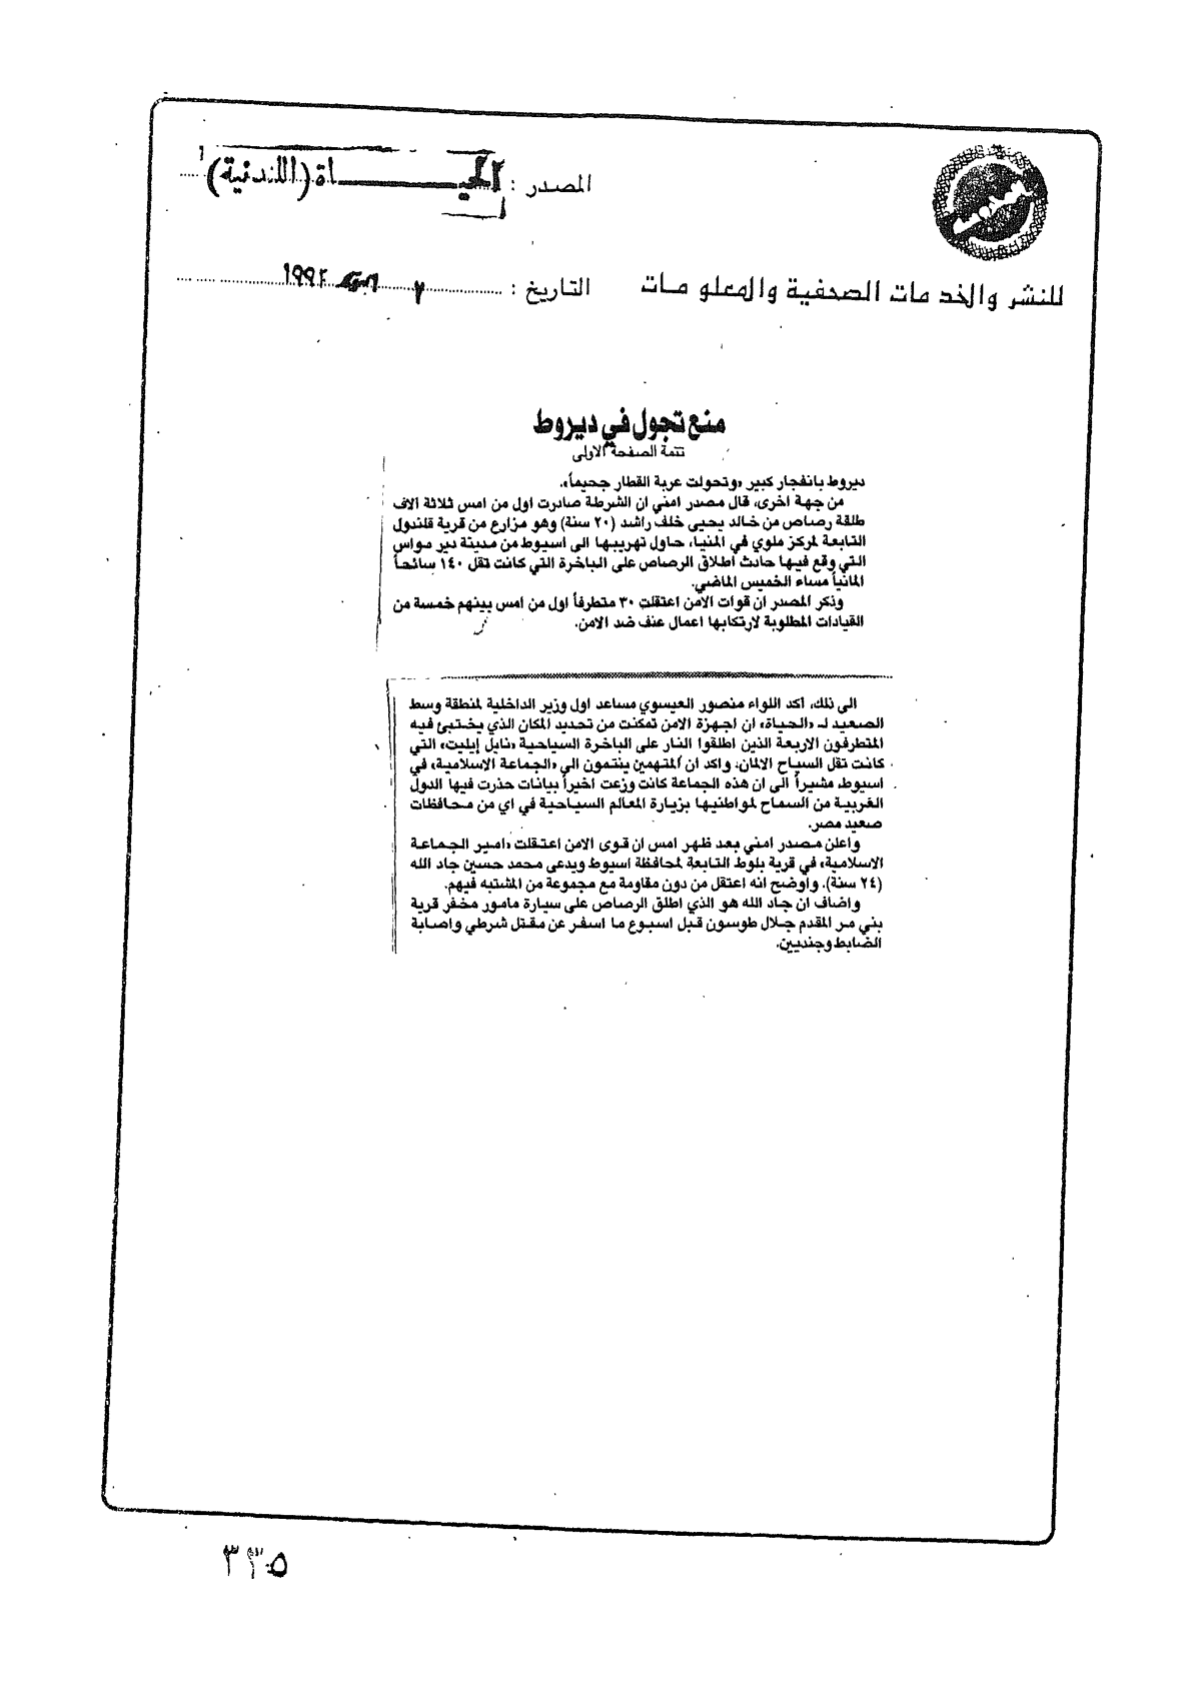 المصدر : الحيـــــــاة (اللندنية)
للنشر والخدمات الصحفية والمعلومات
التاريخ : ١٩٩٢
منع تجول في ديروط
تتمة الصفحة الاولى
ديروط بانفجار كبير «وتحولت عربة القطار جحيماً».
من جهة اخرى، قال مصدر امني ان الشرطة صادرت اول من امس ثلاثة الاف
طلقة رصاص من خالد يحيى خلف راشد (٢٠ سنة) وهو مزارع من قرية قلندول
التابعة لمركز ملوي في المنيا، حاول تهريبها الى اسيوط من مدينة دير مواس
التي وقع فيها حادث اطلاق الرصاص على الباخرة التي كانت تقل ١٤٠ سائحاً
المانياً مساء الخميس الماضي.
وذكر المصدر ان قوات الامن اعتقلت ٣٠ متطرفاً اول من امس بينهم خمسة من
القيادات المطلوبة لارتكابها اعمال عنف ضد الامن.
الى ذلك، اكد اللواء منصور العيسوي مساعد اول وزير الداخلية لمنطقة وسط
الصعيد لـ «الحياة» ان اجهزة الامن تمكنت من تحديد المكان الذي يختبئ فيه
المتطرفون الاربعة الذين اطلقوا النار على الباخرة السياحية «نايل إيليت» التي
كانت تقل السياح الالمان، واكد ان المتهمين ينتمون الى «الجماعة الاسلامية» في
اسيوط، مشيراً الى ان هذه الجماعة كانت وزعت اخيراً بيانات حذرت فيها الدول
الغربية من السماح لمواطنيها بزيارة المعالم السياحية في اي من محافظات
صعيد مصر.
واعلن مصدر امني بعد ظهر امس ان قوى الامن اعتقلت «امير الجماعة
الاسلامية» في قرية بلوط التابعة لمحافظة اسيوط ويدعى محمد حسين جاد الله
(٢٤ سنة). وأوضح انه اعتقل من دون مقاومة مع مجموعة من المشتبه فيهم.
واضاف ان جاد الله هو الذي اطلق الرصاص على سيارة مامور مخفر قرية
بني مر المقدم جلال طوسون قبل اسبوع ما اسفر عن مقتل شرطي واصابة
الضابط وجنديين.
٣٣٥